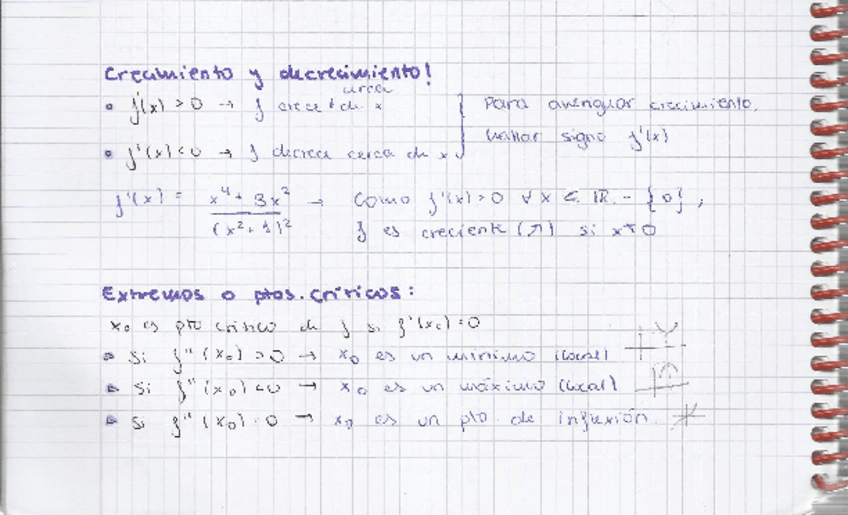 Crecimiento y decrecimiento!
• f'(x) > 0 → f crece cerca de x
• f'(x) < 0 → f decrece cerca de x
Para averiguar crecimiento,
hallar signo f'(x)
f'(x) = x⁴ + 3x² / (x² + 1)² → Como f'(x) > 0 ∀ x ∈ ℝ - {0},
f es creciente (↗) si x ≠ 0
Extremos o ptos. críticos:
x₀ es pto crítico de f si f'(x₀) = 0
Si f''(x₀) > 0 → x₀ es un mínimo (local)
Si f''(x₀) < 0 → x₀ es un máximo (local)
Si f''(x₀) = 0 → x₀ es un pto. de inflexión.